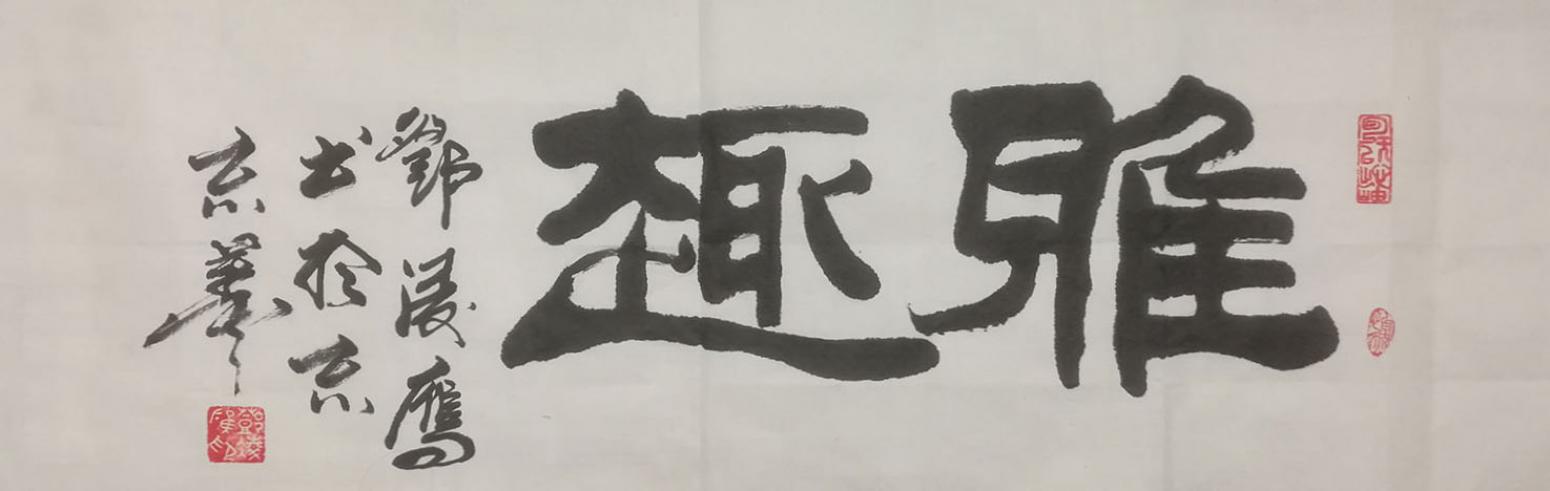 雅趣
鄧淩鷹
书於京
京華